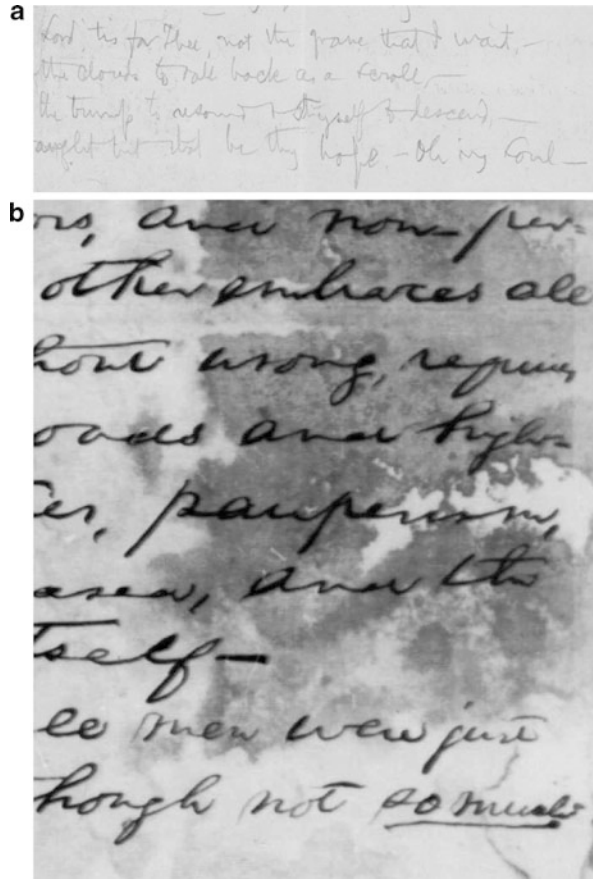 a
Lord, tis for Thee, not the grave that I wait,—
the clouds to roll back as a scroll,—
the trump to resound & thyself to descend,—
aught but that be thy hope,—Oh my Soul—
b
ors, and non-per-
other embraces all
hout wrong, requires
oads and high-
ter, pauperism,
ased, and the
tself—
ll men were just
though not so much